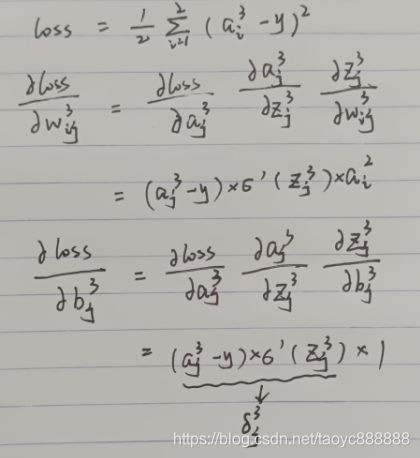 loss = 1/2 Σ_{i=1}^{2} (a_i^3 - y)^2
∂loss/∂w_{ij}^3 = ∂loss/∂a_j^3 ∂a_j^3/∂z_j^3 ∂z_j^3/∂w_{ij}^3
= (a_j^3 - y) × σ'(z_j^3) × a_i^2
∂loss/∂b_j^3 = ∂loss/∂a_j^3 ∂a_j^3/∂z_j^3 ∂z_j^3/∂b_j^3
= (a_j^3 - y) × σ'(z_j^3) × 1
↓
δ_j^3
https://blog.csdn.net/taoyc888888